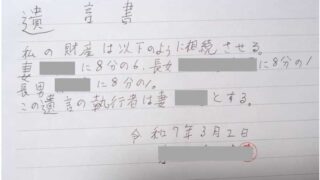 遺言書
私の財産は以下のように相続させる。
妻に8分の6、長女に8分の1
長男に8分の1。
この遺言の執行者は妻とする。
令和7年3月2日